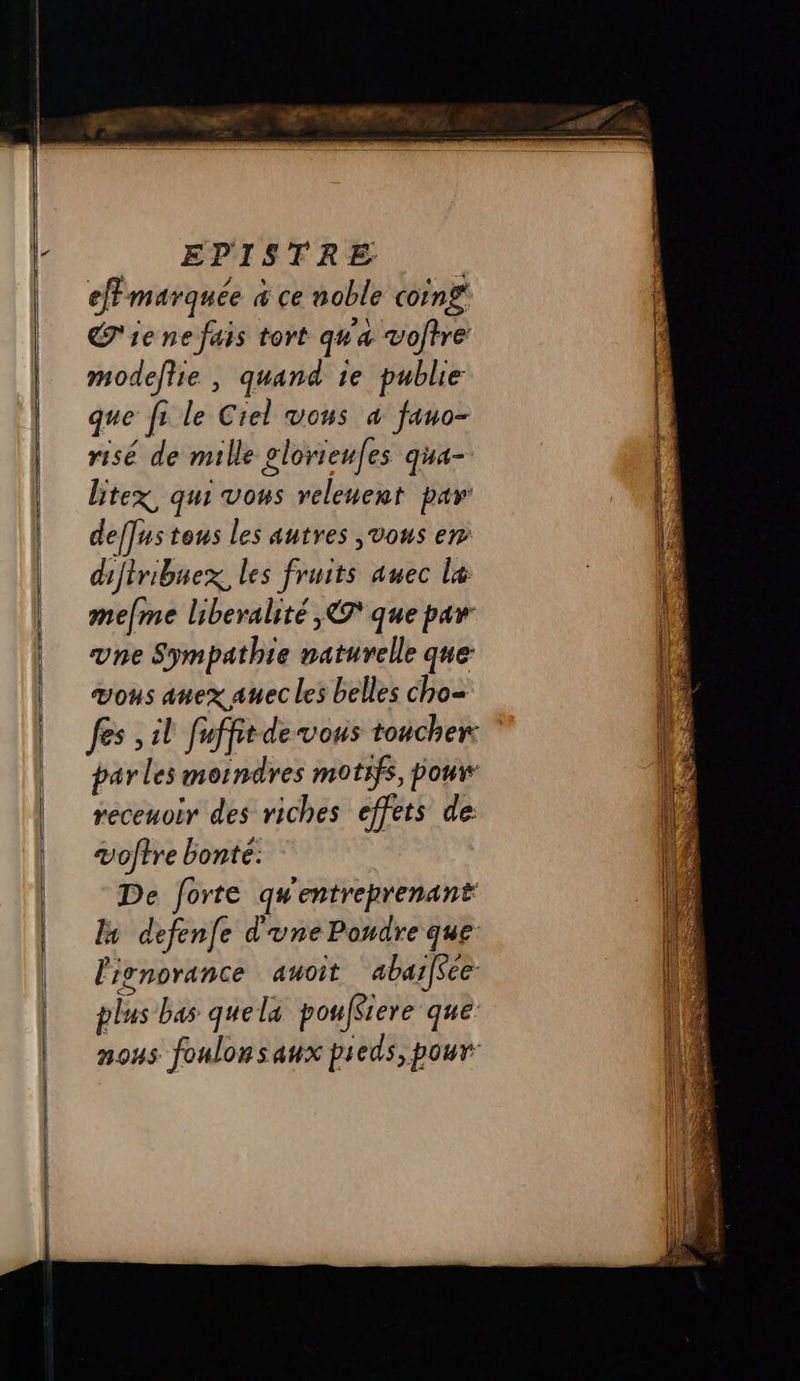 EPISTRE
est marquée à ce noble coing
& ie ne fais tort qu'à vostre
modestie, quand ie publie
que si le Ciel vous a fauo-
risé de mille glorieuses qua-
litez, qui vous releuent par
dessus tous les autres, vous en
distribuez les fruits auec la
mesme liberalité, & que par
vne Sympathie naturelle que
vous auez auec les belles cho-
ses, il suffit de vous toucher
par les moindres motifs, pour
receuoir des riches effets de
vostre bonté.
De sorte qu'entreprenant
la defense d'vne Poudre que
l'ignorance auoit abaissée
plus bas que la poussiere que
nous foulons aux pieds, pour